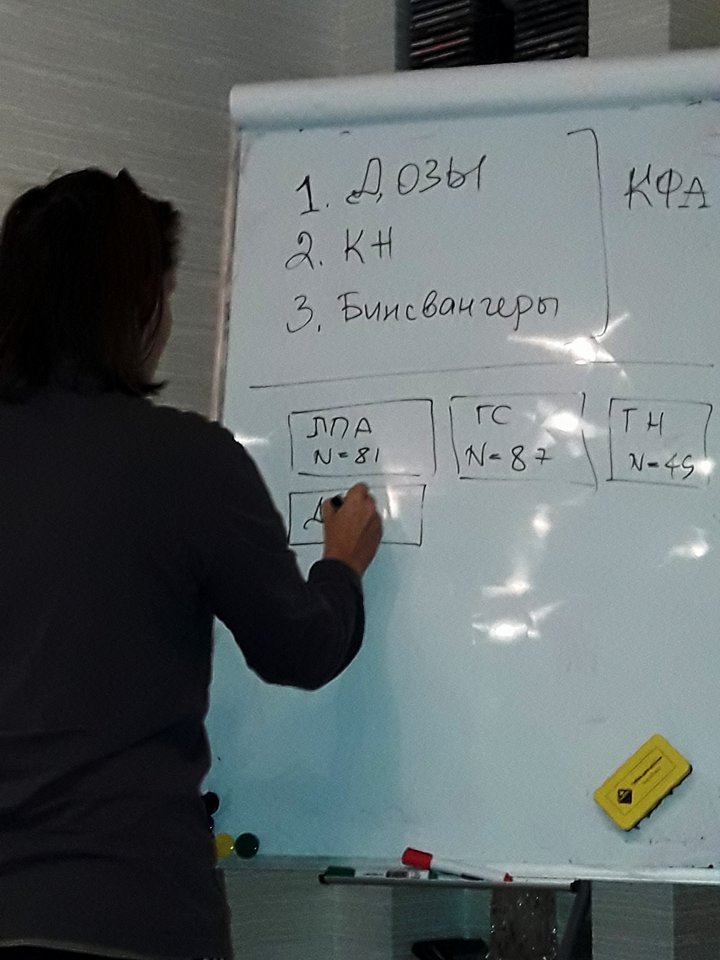 1. ДОЗЫ
2. КН
3. Бинсвангеры
КФА
ЛПА
N=81
ГС
N=87
ТН
N=49